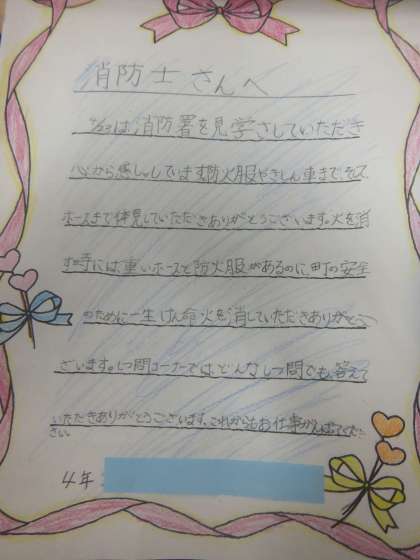 消防士さんへ
4/23は消防署を見学さしていただき
心から感しゃしています。防火服やきしん車まで、そして、
ホースまで体見していただきありがとうございます。火を消
す時には重いホースと防火服があるのに、町の安全
のために一生けん命火を消していただきありがとう
ございます。しつ問コーナーでは、どんなしつ問でも答えて
いただきありがとうございます。これからもお仕事がんばってくだ
さい。
4年